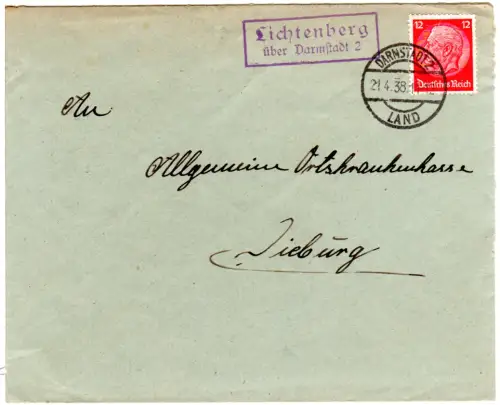 Lichtenberg
über Darmstadt 2
12 12
Deutsches Reich
DARMSTADT 2
21.4.38
LAND
An
Allgemeine Ortskrankenkasse
Dieburg